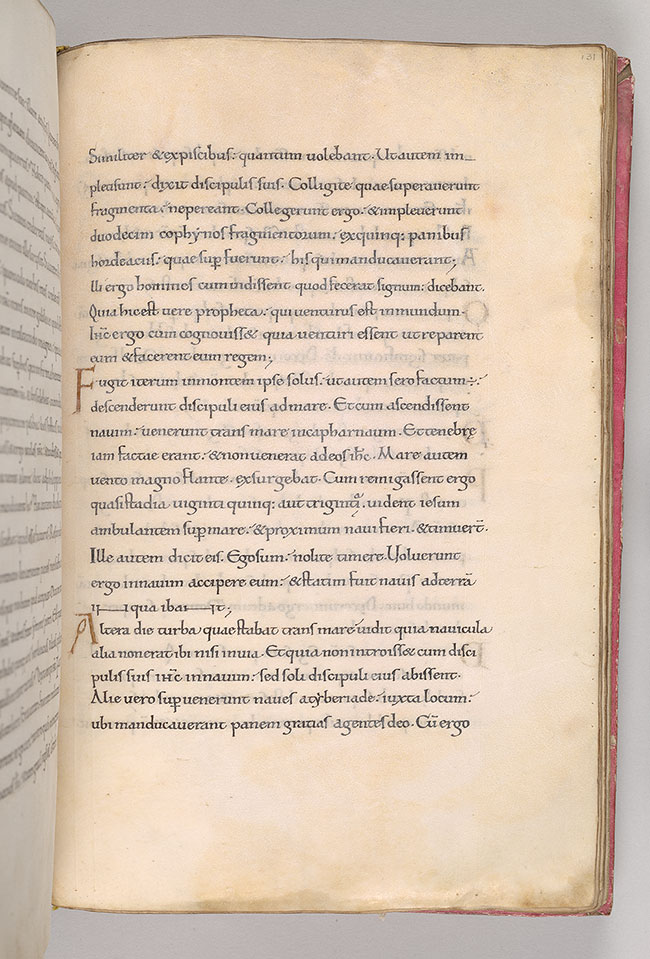 131
Similiter & expiscibus: quantum uolebant. Utautem im
pletisunt: dixit discipulis suis. Colligite quaesuperauerunt
fragmenta: nepereant. Collegerunt ergo. & impleuerunt
duodecim cophynos fragmentorum: exquinq; panibus
hordeaceis: quae supfuerunt: hisquimanducauerant;
Illi ergo homines cumuidissent quodfecerat signum: dicebant.
Quia hicest uere propheta: quiuenturus est inmundum.
Ihc ergo cum cognouiss& quia uenturi essent utreparent
eum & facerent eum regem;
Fugit iterum inmontem ipse solus. utautem serofactum÷:
descenderunt discipuli eius admare. Etcum ascendissent
nauim: uenerunt trans mare incapharnaum. Ettenebrę
iam factae erant: & nonuenerat adeos ihc. Mare autem
uento magno flante. exsurgebat. Cum remigassent ergo
quasistadia uiginti quinq; aut triginta. uident iesum
ambulantem supmare: & proximum naui fieri. & timuert̄.
Ille autem dicit eis. Egosum: nolite timere. Uoluerunt
ergo innauim accipere eum: & statim fuit nauis adterrā
i qua ibat;
Altera die turba quaestabat trans mare: uidit quia nauicula
alia nonerat ibi nisi una. Et quia non introiss& cum disci
pulis suis ihc innauim: sed soli discipuli eius abissent.
Alię uero supuenerunt naues atyberiade: iuxta locum:
ubi manducauerant panem gratias agentes deo. Cū ergo